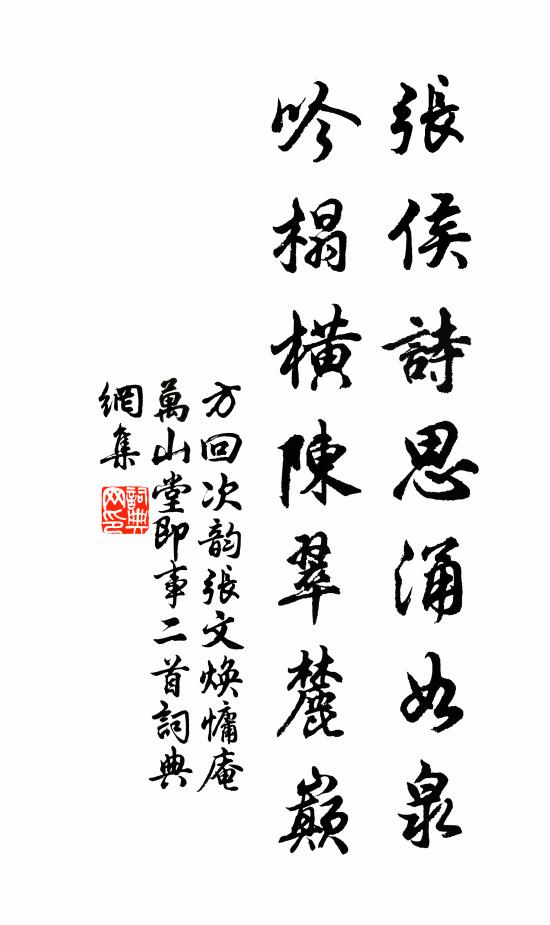 張侯詩思涌如泉
吟榻橫陳翠麓巔
方回次韵張文焕慵庵
萬山堂即事二首詞典
網集
詞典
网印